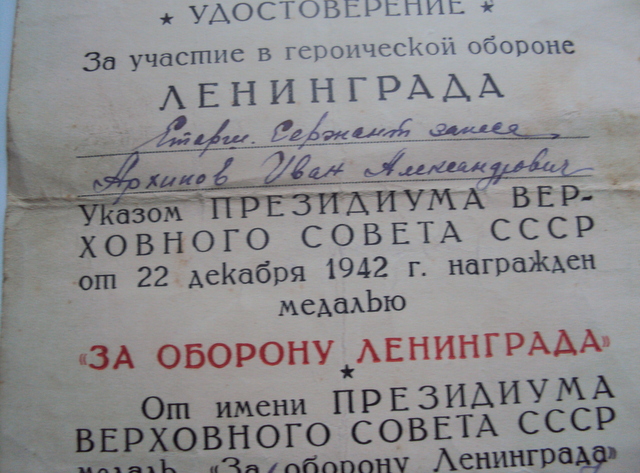 ★ УДОСТОВЕРЕНИЕ ★
За участие в героической обороне
ЛЕНИНГРАДА
Старш. Сержант запаса
Архипов Иван Александрович
Указом ПРЕЗИДИУМА ВЕР-
ХОВНОГО СОВЕТА СССР
от 22 декабря 1942 г. награжден
медалью
«ЗА ОБОРОНУ ЛЕНИНГРАДА»
★
От имени ПРЕЗИДИУМА
ВЕРХОВНОГО СОВЕТА СССР
медаль „За оборону Ленинграда"